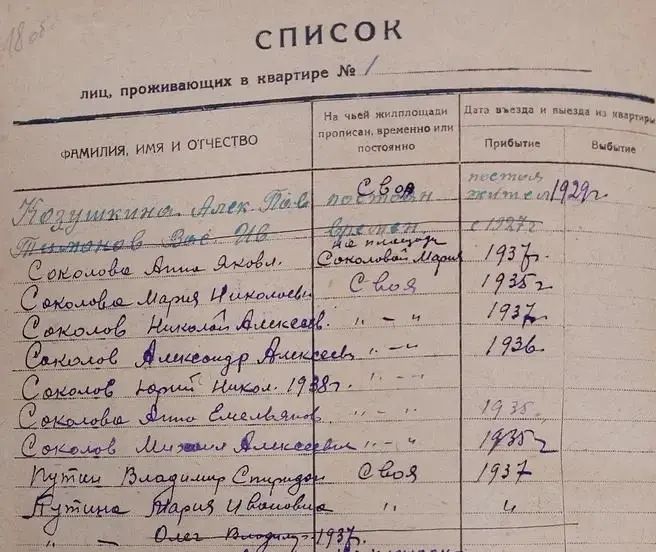 18 об
СПИСОК
лиц, проживающих в квартире № 1
ФАМИЛИЯ, ИМЯ И ОТЧЕСТВО
На чьей жилплощади прописан, временно или постоянно
Дата въезда и выезда из квартиры
Прибытие
Выбытие
Козушкина Алек. Пав постоян Своя постоя жител 1929г
Тимонов Вас. Ив времен. с 1927г
Соколова Анна Яковл. на площади Соколовой Мария 1937г.
Соколова Мария Николаевн Своя 1935г
Соколов Николай Алексеев. " – " 1937г
Соколов Александр Алексеев " – " 1936
Соколов Юрий Никол. 1938г. " – "
Соколова Анна Емельянов " – " 1935.
Соколов Михаил Алексеевич " – " 1935г
Путин Владимир Спиридон Своя 1937
Путина Мария Ивановна " "
" – Олег Владим. 1937.